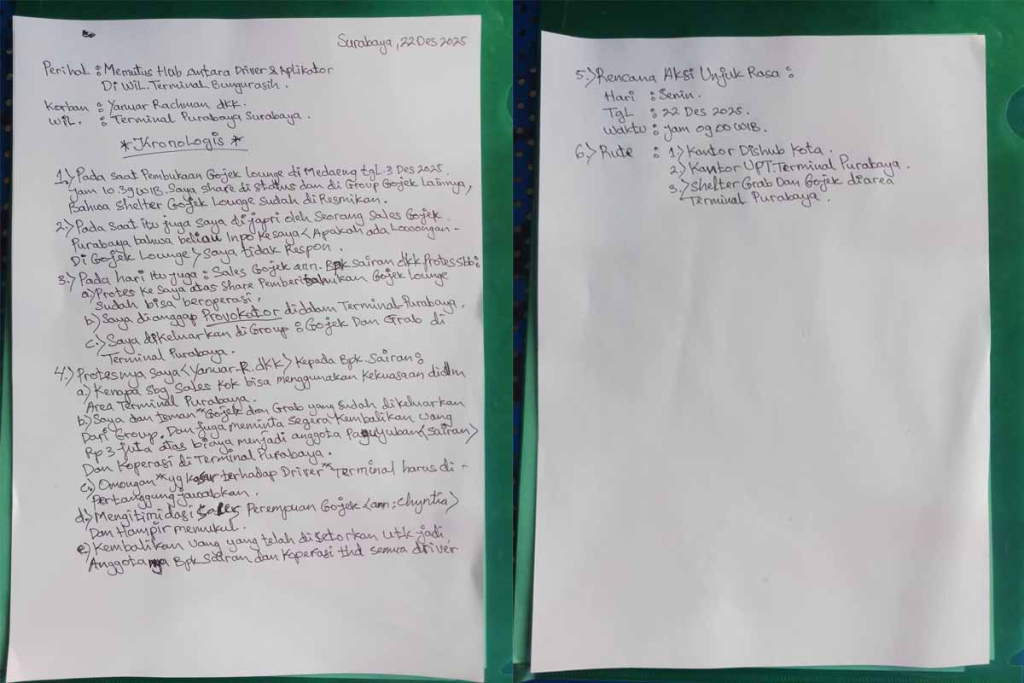 Surabaya, 22 Des 2025
Perihal : Memutus Hub antara Driver & Aplikator
Di Wil. Terminal Bungurasih.
Korban : Yanuar Rachman dkk.
Wil. : Terminal Purabaya Surabaya.
* Kronologis *
1.) Pada saat Pembukaan Gojek Lounge di Medaeng tgl. 3 Des 2025
Jam 10.39 WIB. Saya share di status dan di Group Gojek Lainnya,
Bahwa Shelter Gojek Lounge Sudah di Resmikan.
2.) Pada saat itu juga Saya di japri oleh Seorang Sales Gojek
Purabaya bahwa beliau Inpo ke saya < Apakah ada Lowongan -
Di Gojek Lounge > Saya tidak Respon.
3.) Pada hari Itu juga : Sales Gojek ann. Bpk sairan dkk Protes sbb :
a.) Protes ke Saya atas Share Pemberitahukan Gojek lounge
Sudah bisa beroperasi.
b.) Saya dianggap Provokator didalam Terminal Purabaya.
c.) Saya dikeluarkan di Group : Gojek Dan Grab di
Terminal Purabaya.
4.) Protesnya saya < Yanuar-R. dkk > Kepada Bpk. Sairan :
a.) Kenapa sbg Sales kok bisa menggunakan Kekuasaan didlm
Area Terminal Purabaya.
b.) Saya dan teman" Gojek dan Grab yang sudah di keluarkan
Dari Group. Dan juga meminta segera Kembalikan uang
Rp 3 juta atas biaya menjadi anggota Paguyuban < sairan >
Dan Koperasi di Terminal Purabaya.
c.) Omongan" yg kasar terhadap Driver" Terminal harus di -
Pertanggung jawabkan.
d.) Mengitimidasi Sales Perempuan Gojek < ann : Chyntia >
Dan Hampir memukul.
e.) Kembalikan uang yang telah di setorkan utk jadi
Anggotanya Bpk Sairan dan Koperasi thd semua driver
5.) Rencana Aksi Unjuk Rasa :
Hari : Senin.
Tgl : 22 Des 2025.
Waktu : jam 09.00 WIB.
6.) Rute : 1.) Kantor Dishub Kota.
2.) Kantor UPT. Terminal Purabaya.
3.) Shelter Grab Dan Gojek diarea
Terminal Purabaya.